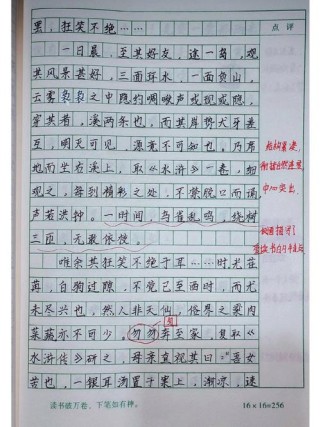 点评
罢，狂笑不绝……
一日晨，至其好友，逢一岛，观
其风景甚好，三面环水，一面负山，
云雾袅袅之中隐约啁啾声或现或隐，
穿其者，溪两条也，而其岸势犬牙差
互，明灭可见，源竟不可知也。乃席
地而坐右溪上，取《水浒》一卷，细
观之，每到精彩之处，不禁脱口而诵，
声若洪钟。一时间，鸟雀乱鸣，绕树
三匝，无敢依枝。
唯余其狂笑不绝于耳……时光荏
苒，白驹过隙，不觉已至酉时，而尤
未尽兴也，然人非天仙，俗界之荤肉
菜蔬亦不可少。匆匆奔至家，复取《
水浒传》研之，母亲直视其曰：“吾女
苦也，一银耳汤置于案上，渐凉，遂
结构紧凑，
衔接自然连贯，
中心突出
读书破万卷，下笔如有神。
16×16=256